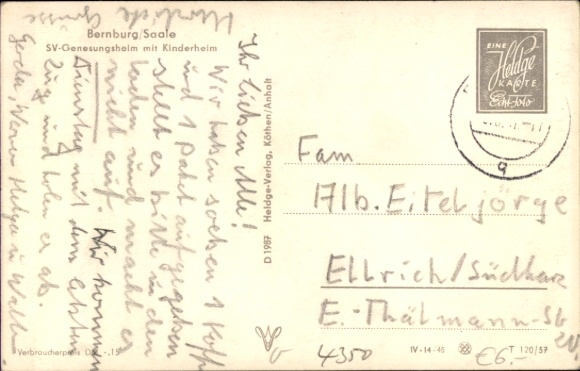 Bernburg/Saale
SV-Genesungsheim mit Kinderheim
Herzliche Grüsse
Ihr lieben Alle!
Wir haben soeben 1 Koffer
und 1 Paket aufgegeben
stellt es bitte in den
Laden und macht es
nicht auf. Wir kommen
Dienstag mit dem letzten
Zug und holen es ab.
Gerda, Werner Helga u Walter
Verbraucherpreis DM -,15
D 1987 Heldge-Verlag, Köthen/Anhalt
EINE
Heldge
KARTE
Echt-Foto
Fam
Alb. Eiteljörge
Ellrich/Südharz
E.-Thälmann-Str
4350
IV-14-45
T 120/57
€6.-